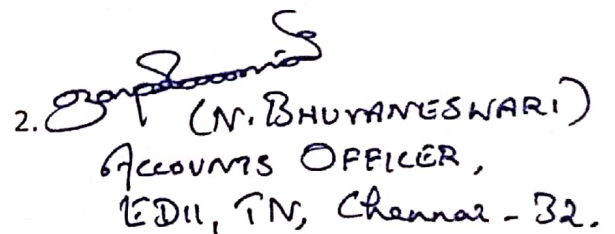 2.
(N. BHUVANESWARI)
ACCOUNTS OFFICER,
EDII, TN, Chennai - 32.